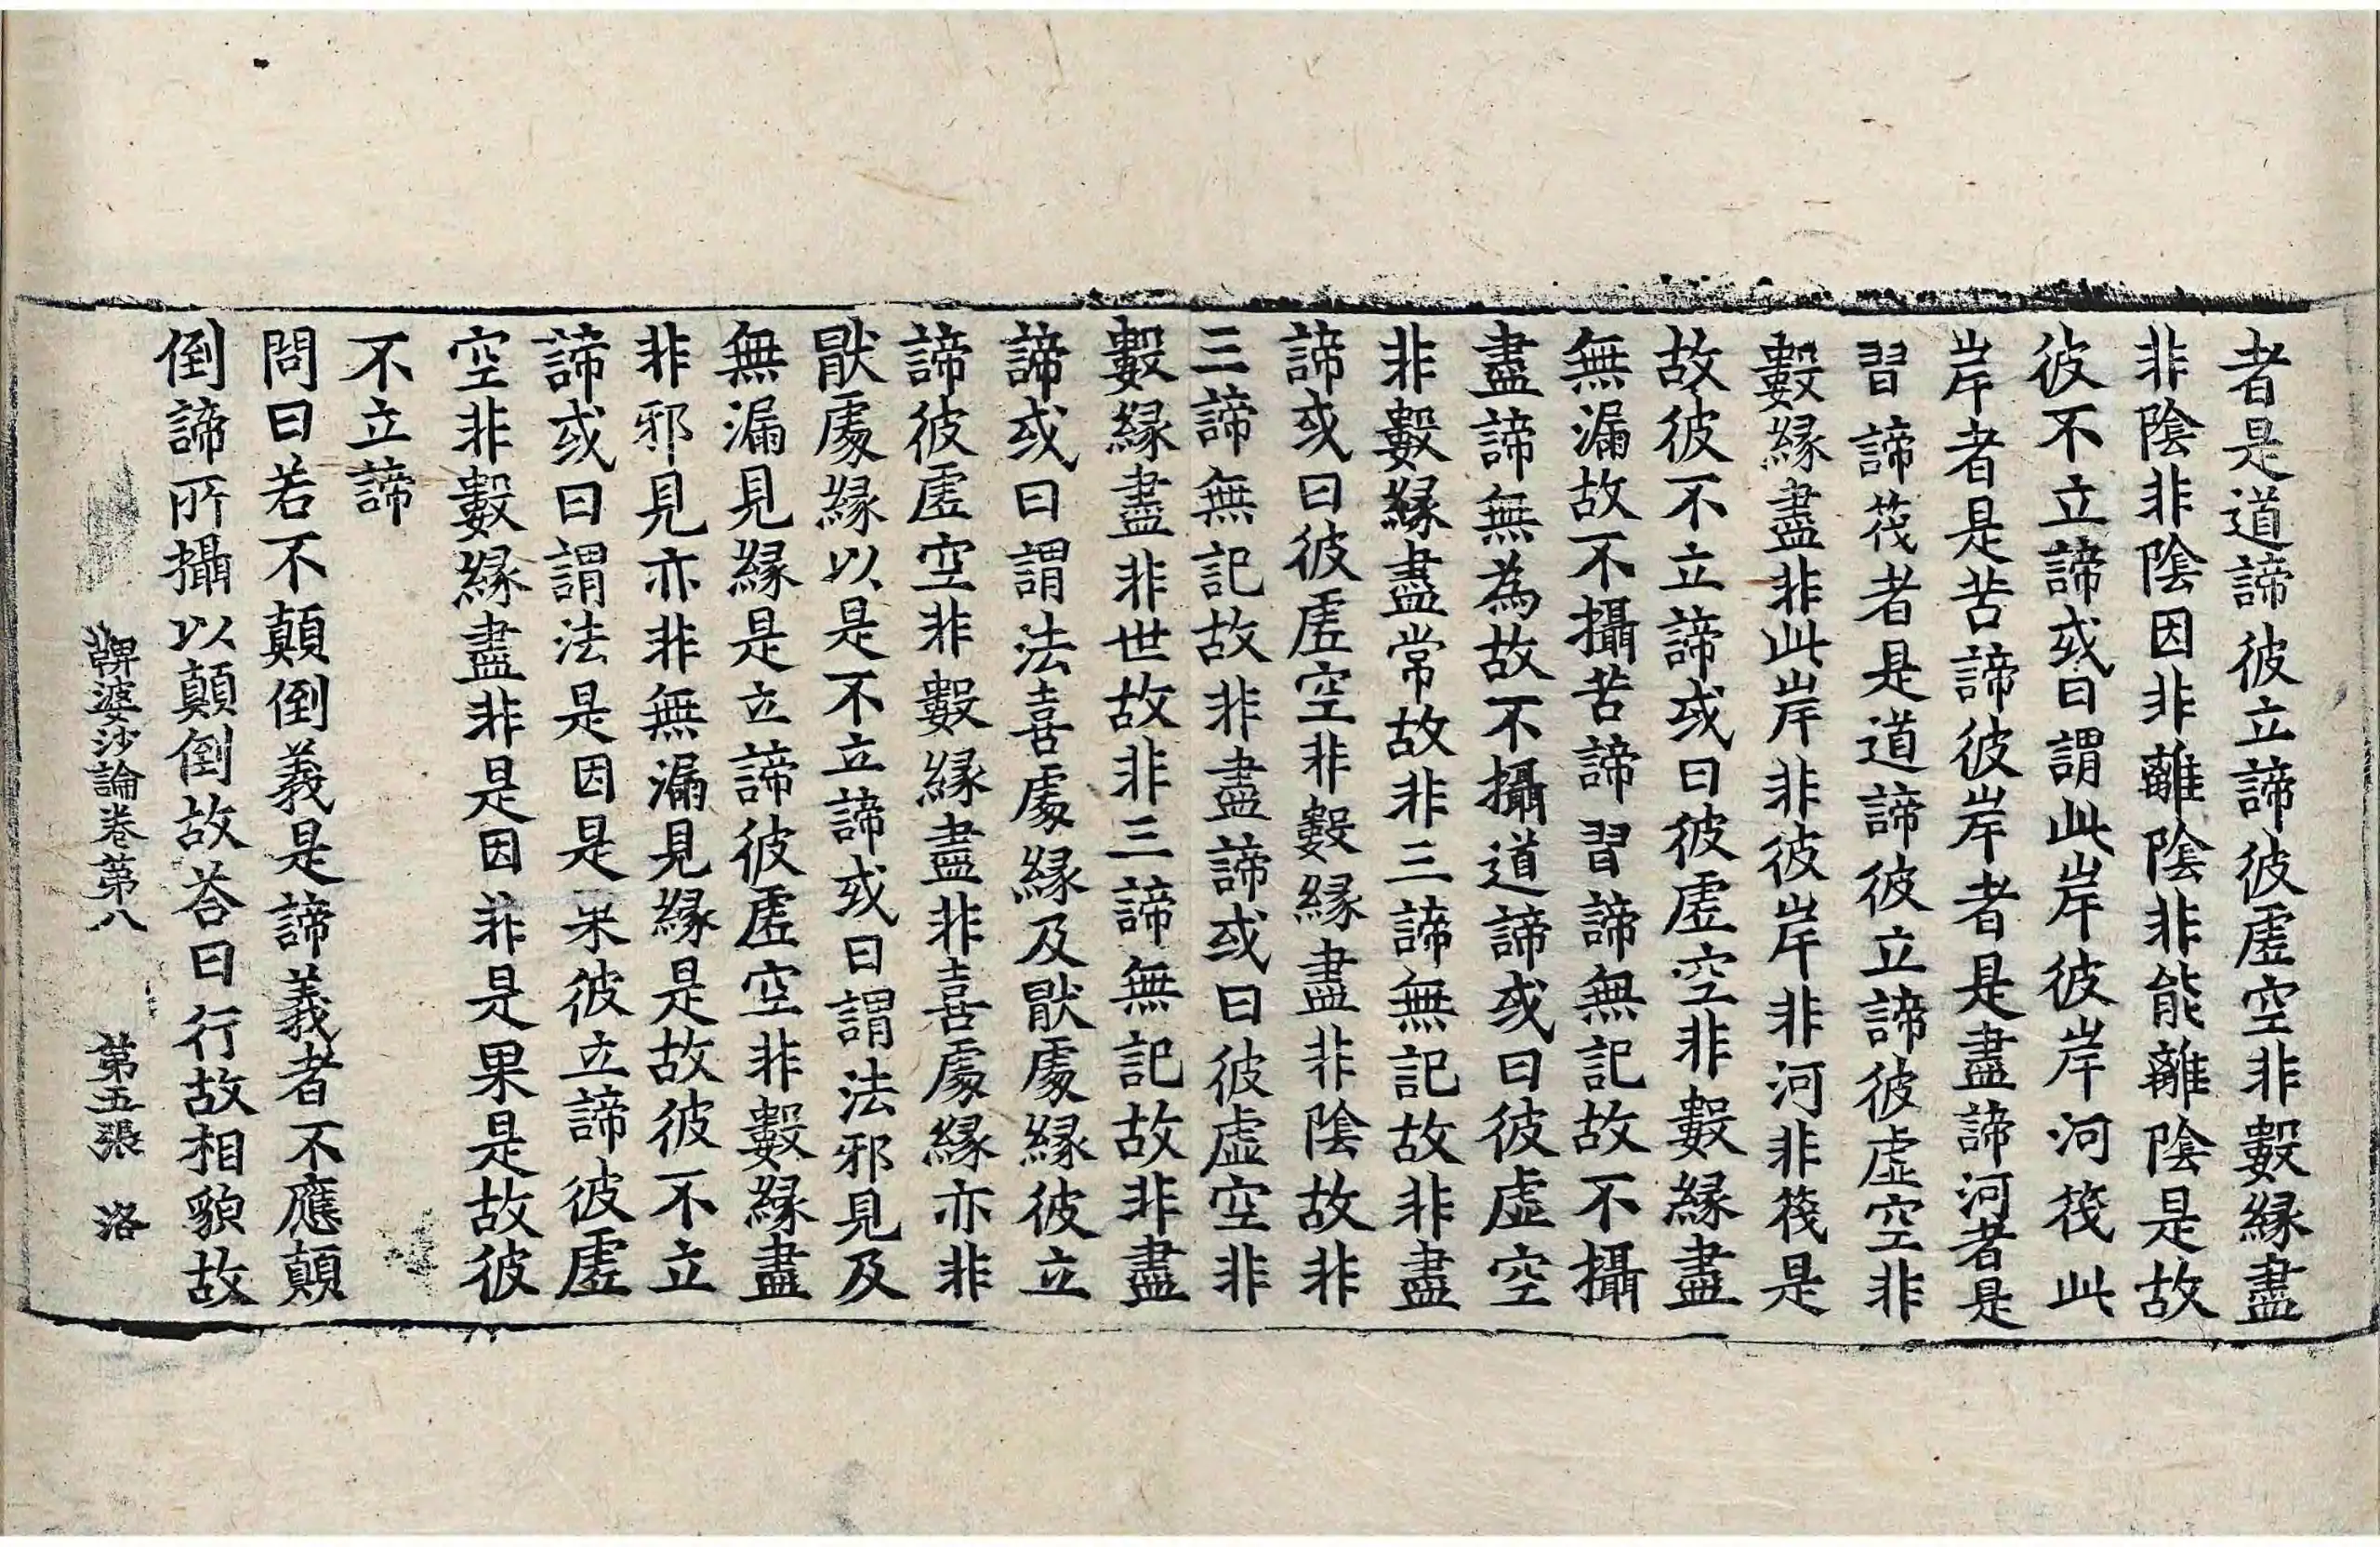 者是道諦彼立諦彼虛空非數緣盡
非陰非陰因非離陰非能離陰是故
彼不立諦或曰謂此岸彼岸河筏此
岸者是苦諦彼岸者是盡諦河者是
習諦筏者是道諦彼立諦彼虛空非
數緣盡非此岸非彼岸非河非筏是
故彼不立諦或曰彼虛空非數緣盡
無漏故不攝苦諦習諦無記故不攝
盡諦無為故不攝道諦或曰彼虛空
非數緣盡常故非三諦無記故非盡
諦或曰彼虛空非數緣盡非陰故非
三諦無記故非盡諦或曰彼虛空非
數緣盡非世故非三諦無記故非盡
諦或曰謂法喜處緣及猒處緣彼立
諦彼虛空非數緣盡非喜處緣亦非
猒處緣以是不立諦或曰謂法邪見及
無漏見緣是立諦彼虛空非數緣盡
非邪見亦非無漏見緣是故彼不立
諦或曰謂法是因是果彼立諦彼虛
空非數緣盡非是因非是果是故彼
不立諦
問曰若不顛倒義是諦義者不應顛
倒諦所攝以顛倒故荅曰行故相貌故
鞞婆沙論卷第八　第五張　洛